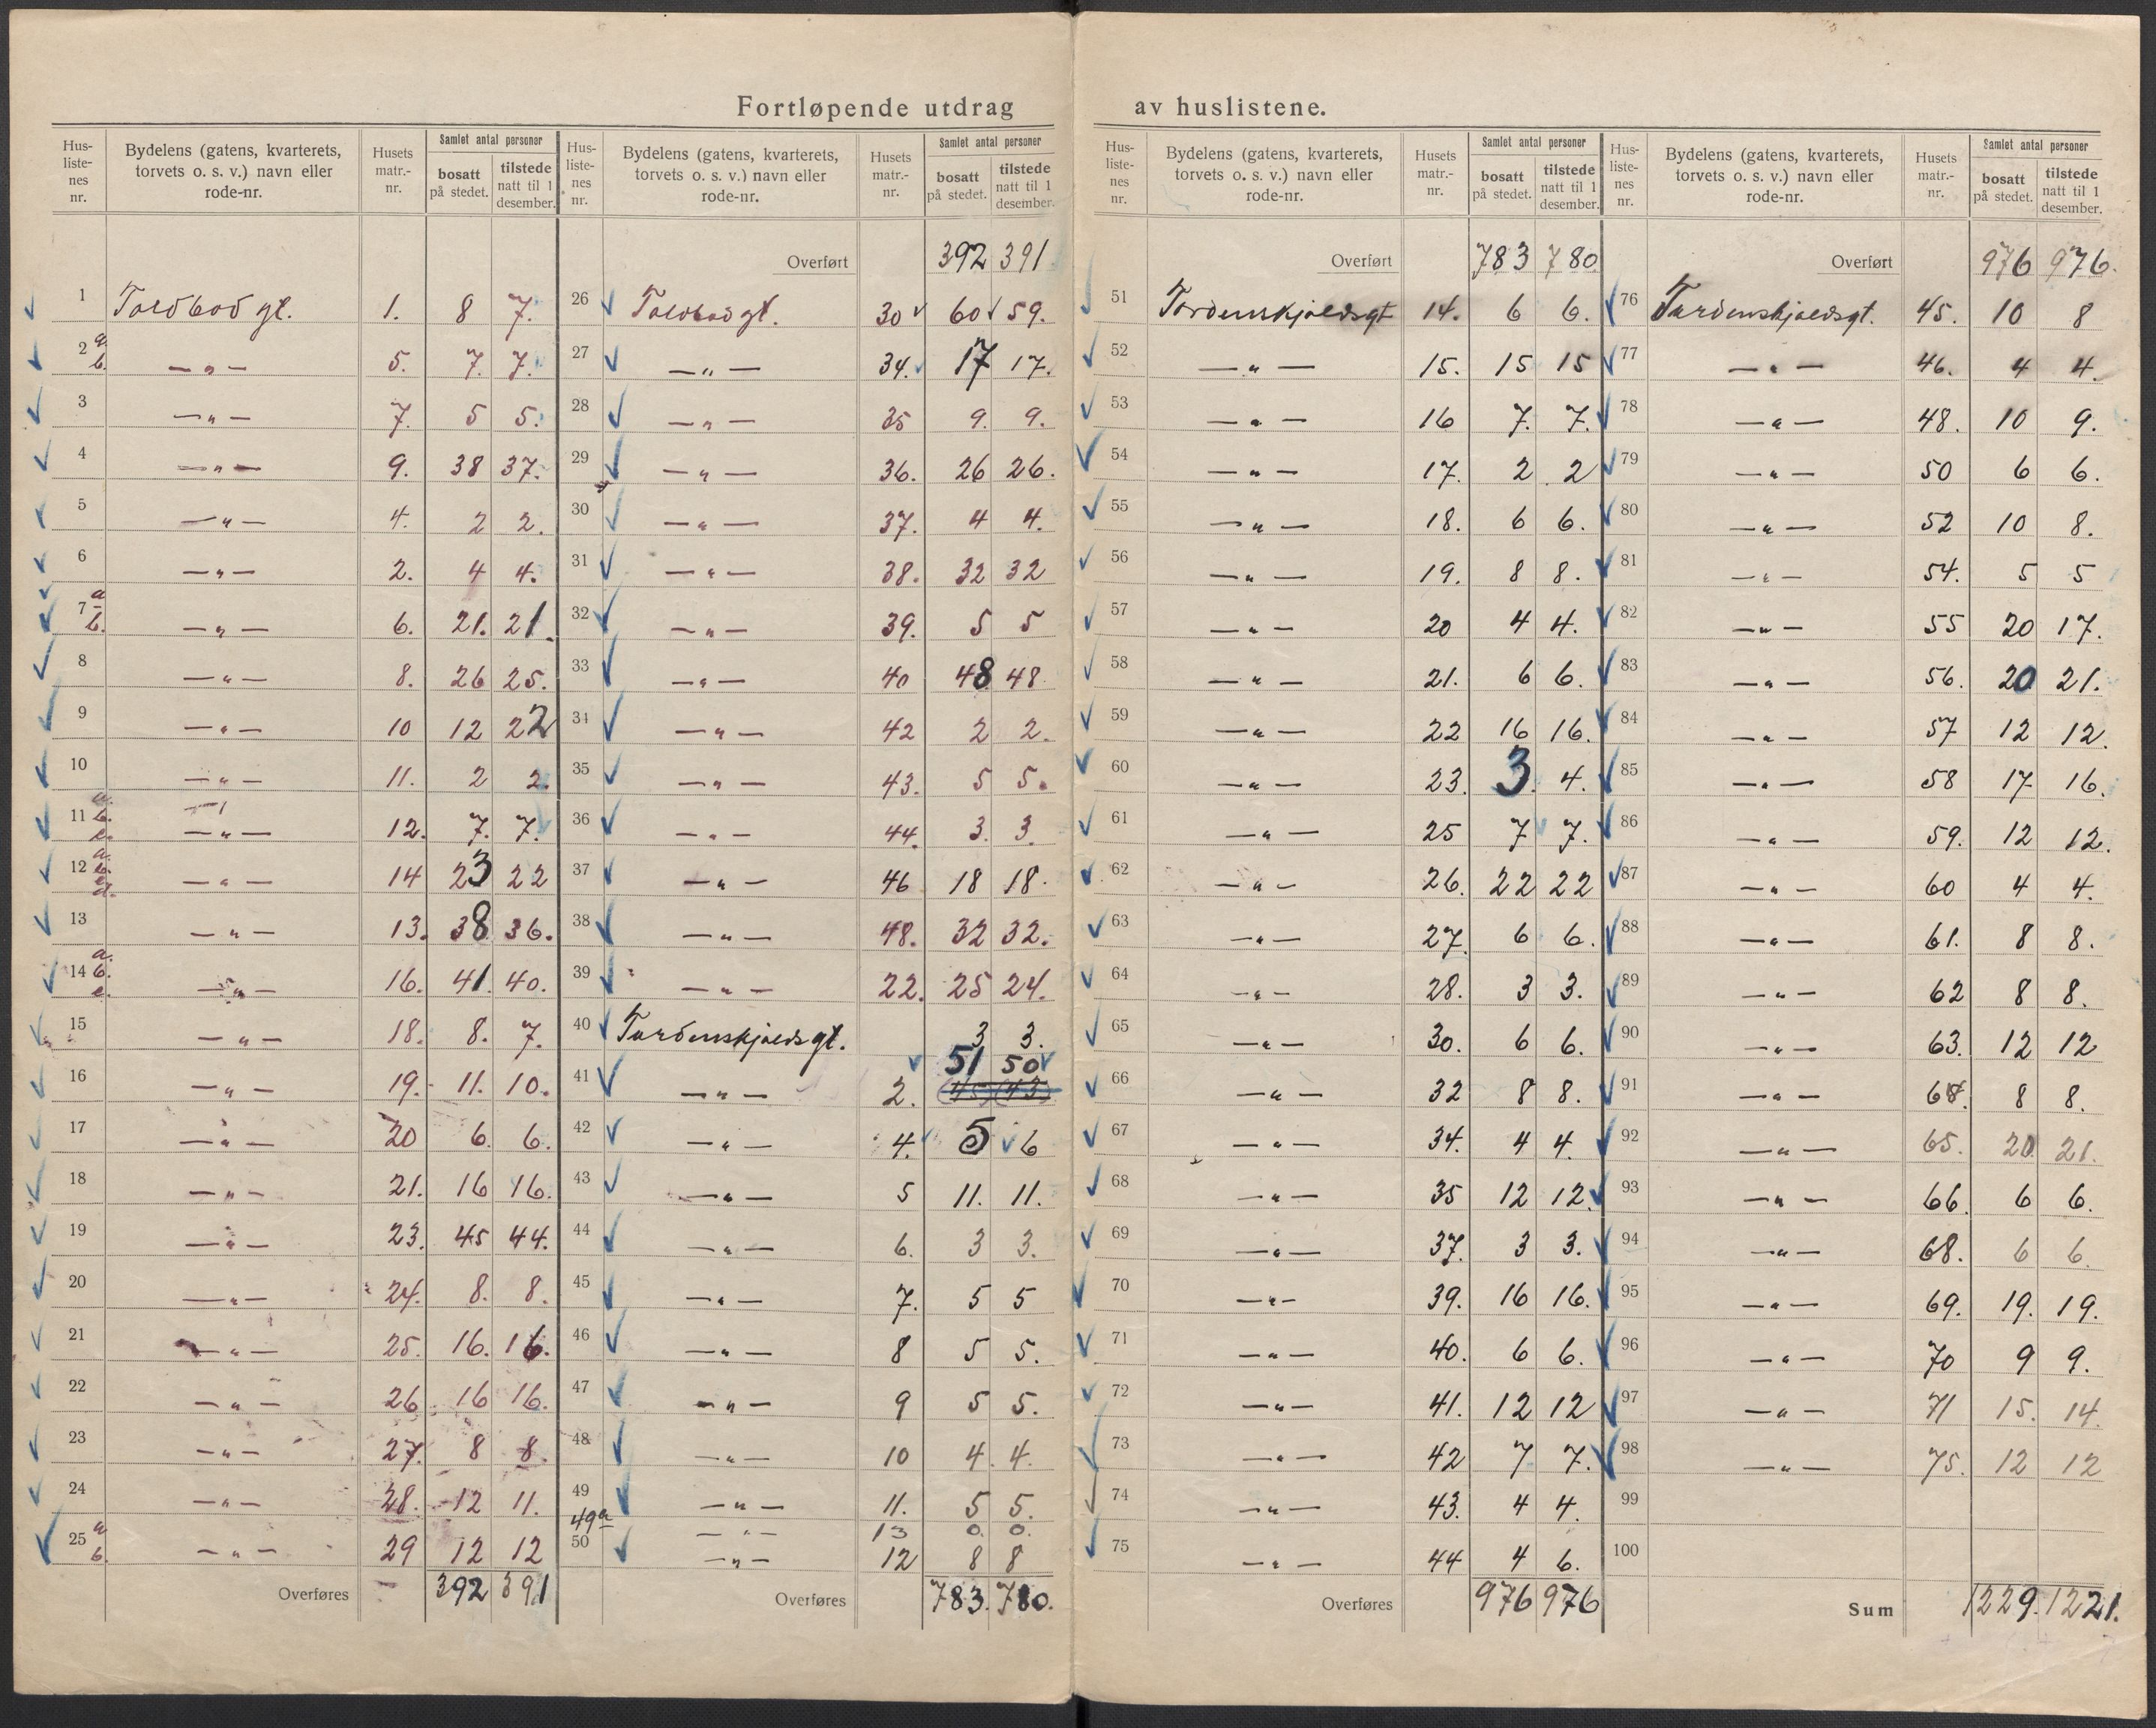 Fortløpende utdrag av huslistene.
Hus-liste-nes nr. | Bydelens (gatens, kvarterets, torvets o. s. v.) navn eller rode-nr. | Husets matr.-nr. | Samlet antal personer bosatt på stedet. | tilstede natt til 1 desember.
1 Toldbod gt. 1. 8 7.
2 a b. —„— 5. 7. 7.
3 —„— 7. 5 5.
4 —„— 9. 38 37.
5 —„— 4. 2 2.
6 —„— 2. 4 4.
7 a b. —„— 6. 21. 21.
8 —„— 8. 26 25.
9 —„— 10 12 22
10 —„— 11. 2 2.
11 a. b. c. —„— 12. 7. 7.
12 a. b. c. d. —„— 14 23 22
13 —„— 13. 38 36.
14 a. b. c. —„— 16. 41. 40.
15 —„— 18. 8. 7.
16 —„— 19. 11. 10.
17 —„— 20 6. 6.
18 —„— 21. 16 16.
19 —„— 23. 45 44.
20 —„— 24. 8. 8.
21 —„— 25. 16. 16.
22 —„— 26 16 16.
23 —„— 27. 8 8.
24 —„— 28. 12 11.
25 a b. —„— 29 12 12
Overføres 392 391
Hus-liste-nes nr. | Bydelens (gatens, kvarterets, torvets o. s. v.) navn eller rode-nr. | Husets matr.-nr. | Samlet antal personer bosatt på stedet. | tilstede natt til 1 desember.
Overført 392 391
26 Toldbod gt. 30 60 59.
27 —„— 34. 17 17.
28 —„— 35 9. 9.
29 —„— 36. 26 26.
30 —„— 37. 4 4.
31 —„— 38. 32 32
32 —„— 39. 5 5
33 —„— 40 48 48
34 —„— 42 2 2.
35 —„— 43. 5 5.
36 —„— 44. 3. 3.
37 —„— 46 18 18.
38 —„— 48. 32 32.
39 —„— 22. 25 24.
40 Tordenskjoldsgt. 3 3.
51 50
41 —„— 2. (45) (43)
42 —„— 4. 5 6
43 —„— 5 11. 11.
44 —„— 6. 3 3.
45 —„— 7. 5 5
46 —„— 8 5 5.
47 —„— 9 5 5.
48 —„— 10 4. 4.
49 —„— 11. 5 5.
49a —„— 13 0. 0.
50 —„— 12 8 8
Overføres 783. 780.
Hus-liste-nes nr. | Bydelens (gatens, kvarterets, torvets o. s. v.) navn eller rode-nr. | Husets matr.-nr. | Samlet antal personer bosatt på stedet. | tilstede natt til 1 desember.
Overført 783 780
51 Tordenskjoldsgt 14. 6 6.
52 —„— 15. 15 15
53 —„— 16 7. 7.
54 —„— 17. 2 2
55 —„— 18. 6 6.
56 —„— 19. 8 8.
57 —„— 20 4 4.
58 —„— 21. 6 6.
59 —„— 22 16 16.
60 —„— 23. 3. 4.
61 —„— 25 7 7.
62 —„— 26. 22 22
63 —„— 27. 6 6.
64 —„— 28. 3 3.
65 —„— 30. 6 6.
66 —„— 32 8 8.
67 —„— 34. 4 4.
68 —„— 35 12 12.
69 —„— 37. 3 3.
70 —„— 39. 16 16.
71 —„— 40. 6 6.
72 —„— 41. 12 12
73 —„— 42 7 7.
74 —„— 43. 4 4.
75 —„— 44 4 6.
Overføres 976 976
Hus-liste-nes nr. | Bydelens (gatens, kvarterets, torvets o. s. v.) navn eller rode-nr. | Husets matr.-nr. | Samlet antal personer bosatt på stedet. | tilstede natt til 1 desember.
Overført 976 976.
76 Tordenskjoldsgt. 45. 10 8
77 —„— 46. 4 4.
78 —„— 48. 10 9.
79 —„— 50 6 6.
80 —„— 52 10 8.
81 —„— 54. 5 5
82 —„— 55 20 17.
83 —„— 56. 20 21.
84 —„— 57 12 12.
85 —„— 58 17 16.
86 —„— 59. 12 12.
87 —„— 60 4 4.
88 —„— 61. 8 8.
89 —„— 62 8 8.
90 —„— 63. 12 12
91 —„— 64. 8 8.
92 —„— 65. 20 21.
93 —„— 66. 6 6.
94 —„— 68. 6 6.
95 —„— 69. 19. 19.
96 —„— 70 9 9.
97 —„— 71 15. 14.
98 —„— 75. 12 12
99
100
Sum 1229. 1221.